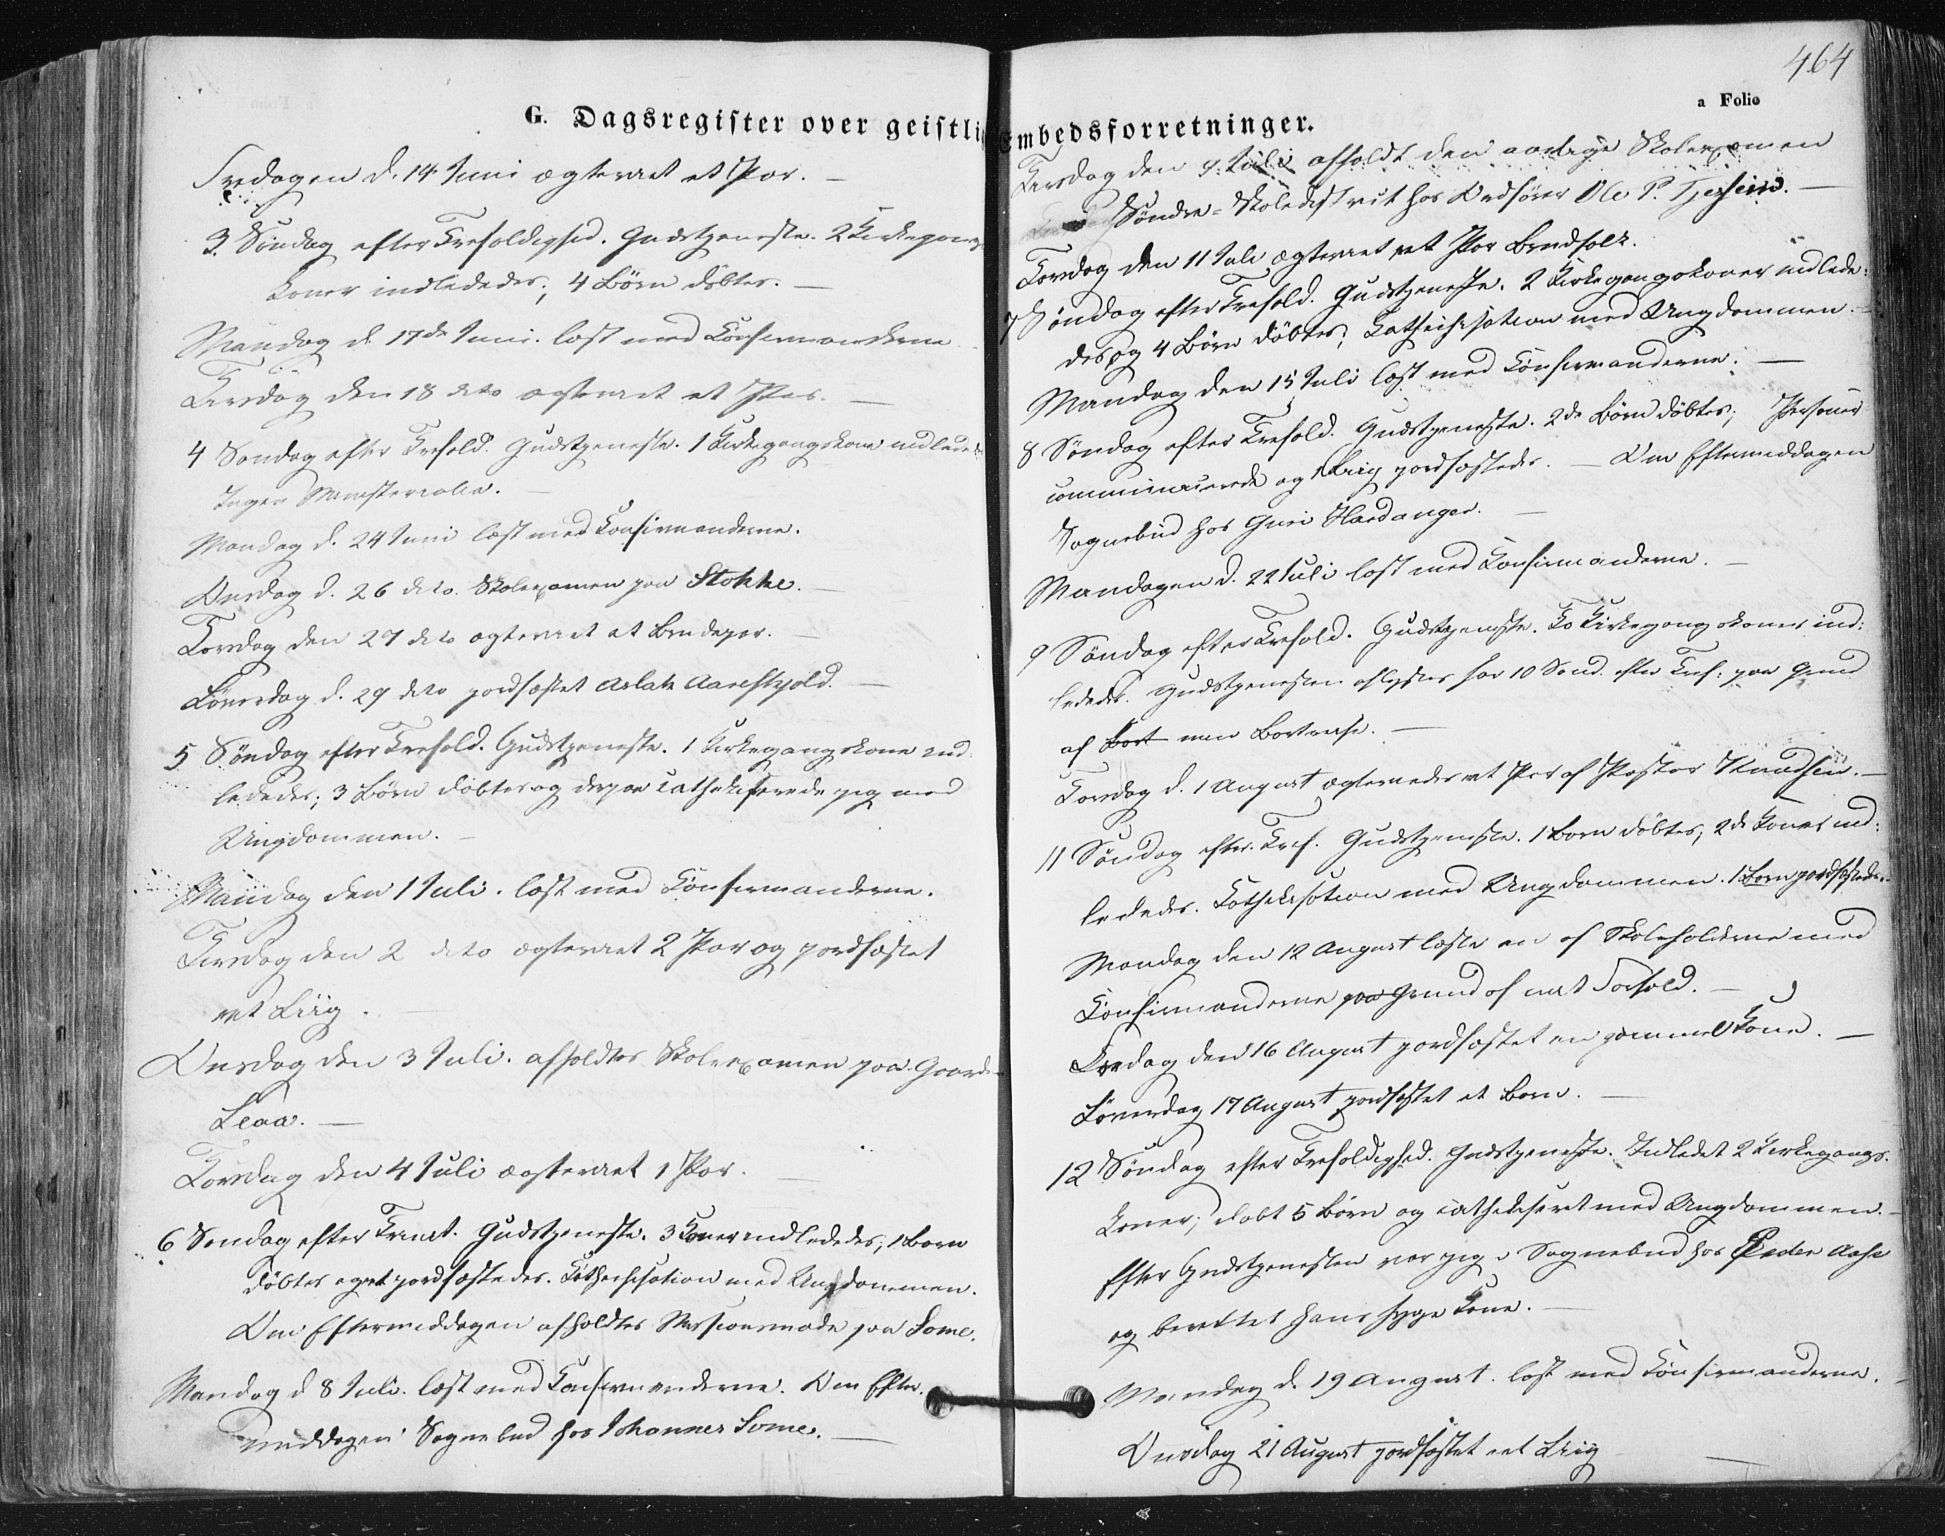 G. Dagsregister over geistli
Fredagen d. 14 Juni ægteviet et Par. —
3. Søndag efter Trefoldighed. Gudstjeneste. 2 Kirkegangs
koner indlededes, 4 Børn døbtes. —
Mandag d. 17de Juni. læst med Confirmanderne
Tirsdag den 18 dito ægteviet et Par. —
4 Søndag efter Trefold. Gudstjeneste. 1 Kirkegangskone indlededes
Ingen Ministerialia. —
Mandag d. 24 Juni læst med Confirmanderne.
Onsdag d. 26 dito. Skoleexamen paa Stokke. —
Torsdag den 27 dito ægteviet et Brudepar.
Løverdag d. 29 dito jordfæstet Aslak Aareskjold. —
5 Søndag efter Trefold. Gudstjeneste. 1 Kirkegangskone ind
lededes; 3 Børn døbtes og derpaa catheciserede jeg med
Ungdommen. —
Mandag den 1 Juli. læst med Confirmanderne.
Tirsdag den 2 dito ægteviet 2 Par og jordfæstet
et Liig. —
Onsdag den 3 Juli. afholdtes Skoleexamen paa Gaarden
Leaa. —
Torsdag den 4 Juli ægteviet 1 Par. —
6 Søndag efter Trinit. Gudstjeneste. 3 Koner indlededes, 1 Barn
døbtes og et jordfæstedes. Cathechisation med Ungdommen.
Om Eftermiddagen afholdtes Missionsmøde paa Lome.
Mandag d 8 Juli. læst med Confirmanderne. Om Efter-
middagen Sognebud hos Johannes Lome. —
464
a Folio
Embedsforretninger.
Tirsdag den 9. Juli afholdt den aarlige Skoleexamen
Søndre-Skoledistrikt hos Ordfører Ole P. —
Torsdag den 11 Juli ægteviet et Par
7 Søndag efter Trefold. Gudstjeneste. 2 Kirkegangskoner indlede:
des og 4 Børn døbtes; Cathechisation med Ungdommen. —
Mandag den 15 Juli læst med Confirmanderne. —
8 Søndag efter Trefold. Gudstjeneste. 2de Børn døbtes, Personer
communicerede og 1 Liig jordfæstedes. — Om Eftermiddagen
Sognebud hos Guri Hardanger. —
Mandagen d. 22 Juli læst med Confirmanderne. —
9 Søndag efter Trefold. Gudstjeneste. To Kirkegangskoner ind:
lededes. Gudstjenesten aflystes for 10 Sønd. efter Tref: paa Grund
af Bort min Bortreise. —
Torsdag d. 1 August ægteviedes et Par af Pastor Knudsen. —
11 Søndag efter Tref. Gudstjeneste. 1 Barn døbtes, 2de Koner ind:
lededes. Cathekisation med Ungdommen. 1 Barn jordfæstedes.
Mandag den 12 August læste en af Skoleholderne med
Confirmanderne paa Grund af mit Forfald. —
den 16 August jordfæstet en gammel Kone. —
Løverdag 17 August jordfæstet et Barn. —
12 Søndag efter Trefoldighed. Gudstjeneste. Indledet 2 Kirkegangs-
koner; døbt 5 Børn og catheciseret med Ungdommen. —
Efter Gudstjenesten var jeg i Sognebud hos Peder Aase
og berettet hans syge Kone. —
Mandag d. 19 August. læst med Confirmanderne. —
Onsdag 21 August jordfæstet et Liig —